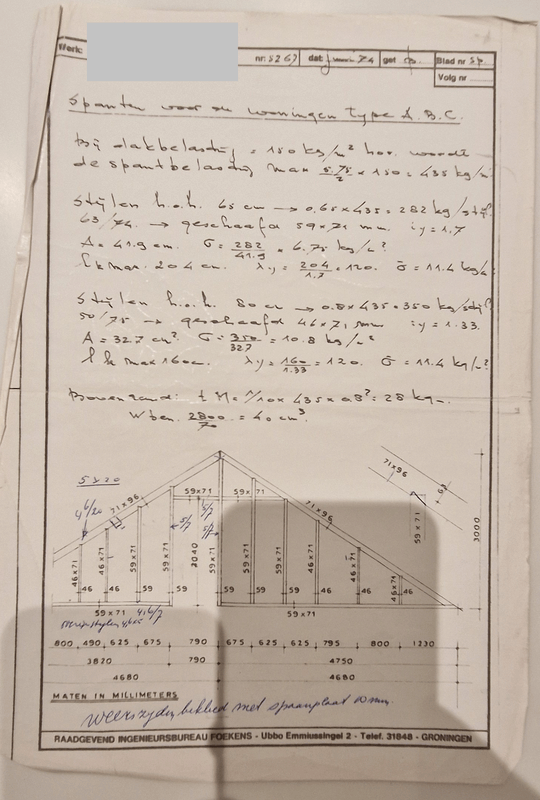 Werk: nr: 5267 dat: get Blad nr
Volg nr
Spanten voor de woningen type A. B. C.
Bij dakbelasting = 150 kg/m² hor. wordt
de spantbelasting max 5.75/2 × 150 = 435 kg/m
Stijlen h.o.h. 65 cm → 0.65×435 = 282 kg/stijl
63/74 → geschaafd 59×71 mm iy = 1.7
A = 41.9 cm. σ = 282/41.9 = 6.75 kg/c²
lk max. 204 cm. λy = 204/1.7 = 120. σ̄ = 11.4 kg/c
Stijlen h.o.h. 80 cm → 0.8×435 = 350 kg/stijl
50/75 → geschaafd 46×71 mm iy = 1.33.
A = 32.7 cm² σ = 350/327 = 10.8 kg/c²
lk max 160 c. λy = 160/1.33 = 120 σ̄ = 11.4 kg/c²
Bovenrand: M = 1/10 × 435 × 0.8² = 28 kgm.
W ben. 2800/70 = 40 cm³
5×20
71×96
59×71
71×96
71×96
59×71
3000
46×71 46×71 59×71 59×71 3040 59×71 59×71 59×71 46×71 46×71
46 46 59 59 59 59 59 46 46
59×71 59×71
800 490 625 675 790 675 625 625 795 800 1230
3870 790 4750
4680 4680
MATEN IN MILLIMETERS
Weerszijden bekleed met spaanplaat 10 mm.
RAADGEVEND INGENIEURSBUREAU FOEKENS - Ubbo Emmiussingel 2 - Telef. 31848 - GRONINGEN